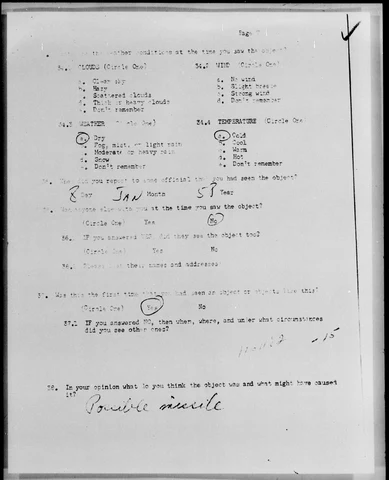 Page
conditions at the time you saw the object?
34.1 CLOUDS (Circle One) 34.2 WIND (Circle One)
a. Clear sky a. No wind
b. Hazy b. Slight breeze
c. Scattered clouds c. Strong wind
d. Thick or heavy clouds d. Don't remember
e. Don't remember
34.3 WEATHER (Circle One) 34.4 TEMPERATURE (Circle One)
a. Dry a. Cold
b. Fog, mist, or light rain b. Cool
c. Moderate or heavy rain c. Warm
d. Snow d. Hot
e. Don't remember e. Don't remember
did you report to some official that you had seen the object?
8 Day JAN Month 53 Year
anyone else with you at the time you saw the object?
(Circle One) Yes No
36.1 IF you answered YES, did they see the object too?
(Circle One) Yes No
36.2 Please list their names and addresses
37. Was this the first time that you had seen an object or objects like this?
(Circle One) Yes No
37.1 IF you answered NO, then when, where, and under what circumstances
did you see other ones?
-15
38. In your opinion what do you think the object was and what might have caused
it?
Possible missile